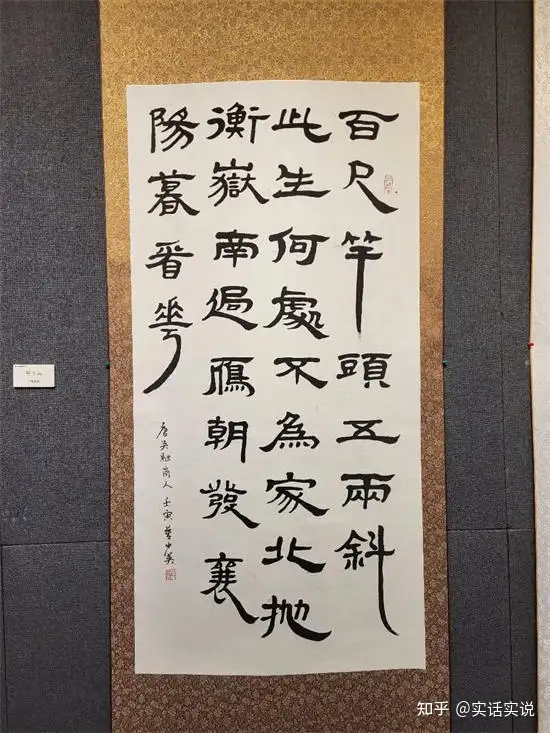 百尺竿頭五兩斜
此生何處不為家北抛
衡嶽南過雁朝發襄
陽暮看華
唐吴融商人 壬寅
知乎 @实话实说